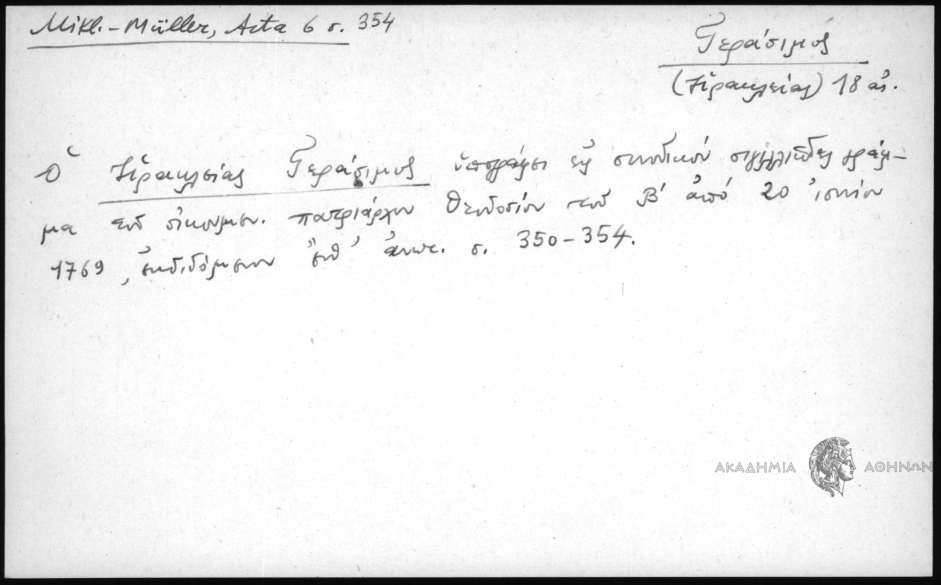 Mikl.-Müller, Acta 6 σ. 354
Γεράσιμος
(Ἡρακλείας) 18 αἰ.
Ὁ Ἡρακλείας Γεράσιμος ὑπογράφει εἰς συνοδικόν σιγιλλιῶδες γράμ-
μα τοῦ οἰκουμεν. πατριάρχου Θεοδοσίου τοῦ Β΄ ἀπό 20 ἰουνίου
1769, ἐκδιδόμενον ἔνθ' ἀνωτ. σ. 350-354.
ΑΚΑΔΗΜΙΑ ΑΘΗΝΩΝ